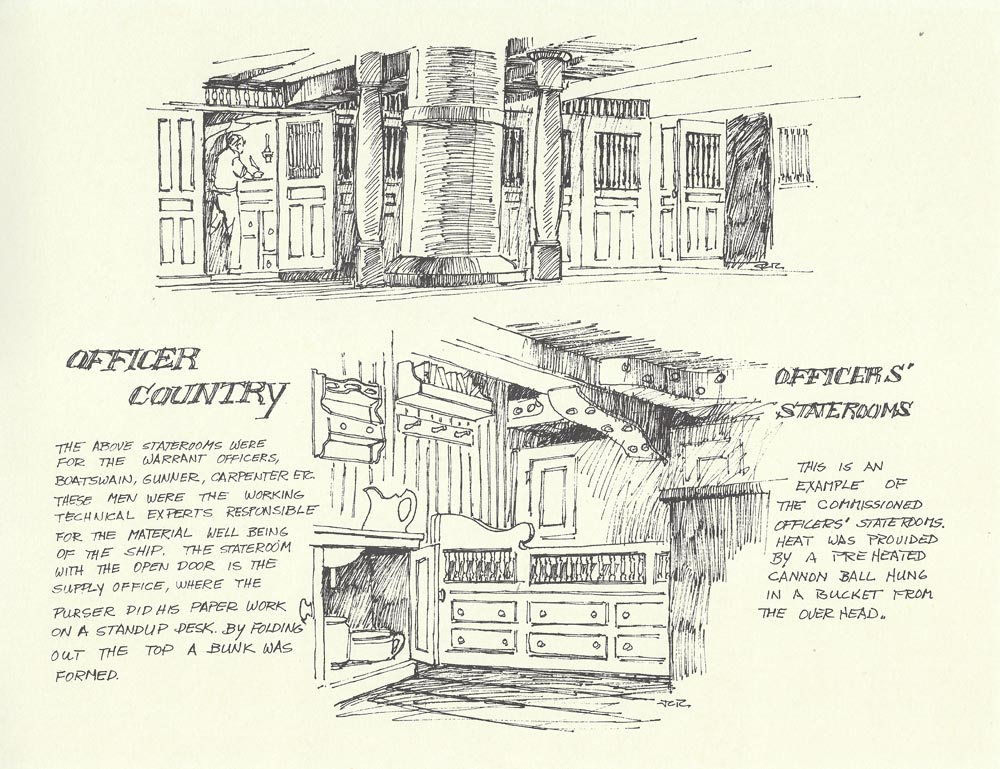 OFFICER
COUNTRY
THE ABOVE STATEROOMS WERE
FOR THE WARRANT OFFICERS,
BOATSWAIN, GUNNER, CARPENTER ETC.
THESE MEN WERE THE WORKING
TECHNICAL EXPERTS RESPONSIBLE
FOR THE MATERIAL WELL BEING
OF THE SHIP. THE STATEROOM
WITH THE OPEN DOOR IS THE
SUPPLY OFFICE, WHERE THE
PURSER DID HIS PAPER WORK
ON A STANDUP DESK. BY FOLDING
OUT THE TOP A BUNK WAS
FORMED.
OFFICERS'
STATEROOMS
THIS IS AN
EXAMPLE OF
THE COMMISSIONED
OFFICERS' STATEROOMS.
HEAT WAS PROVIDED
BY A PREHEATED
CANNON BALL HUNG
IN A BUCKET FROM
THE OVERHEAD.